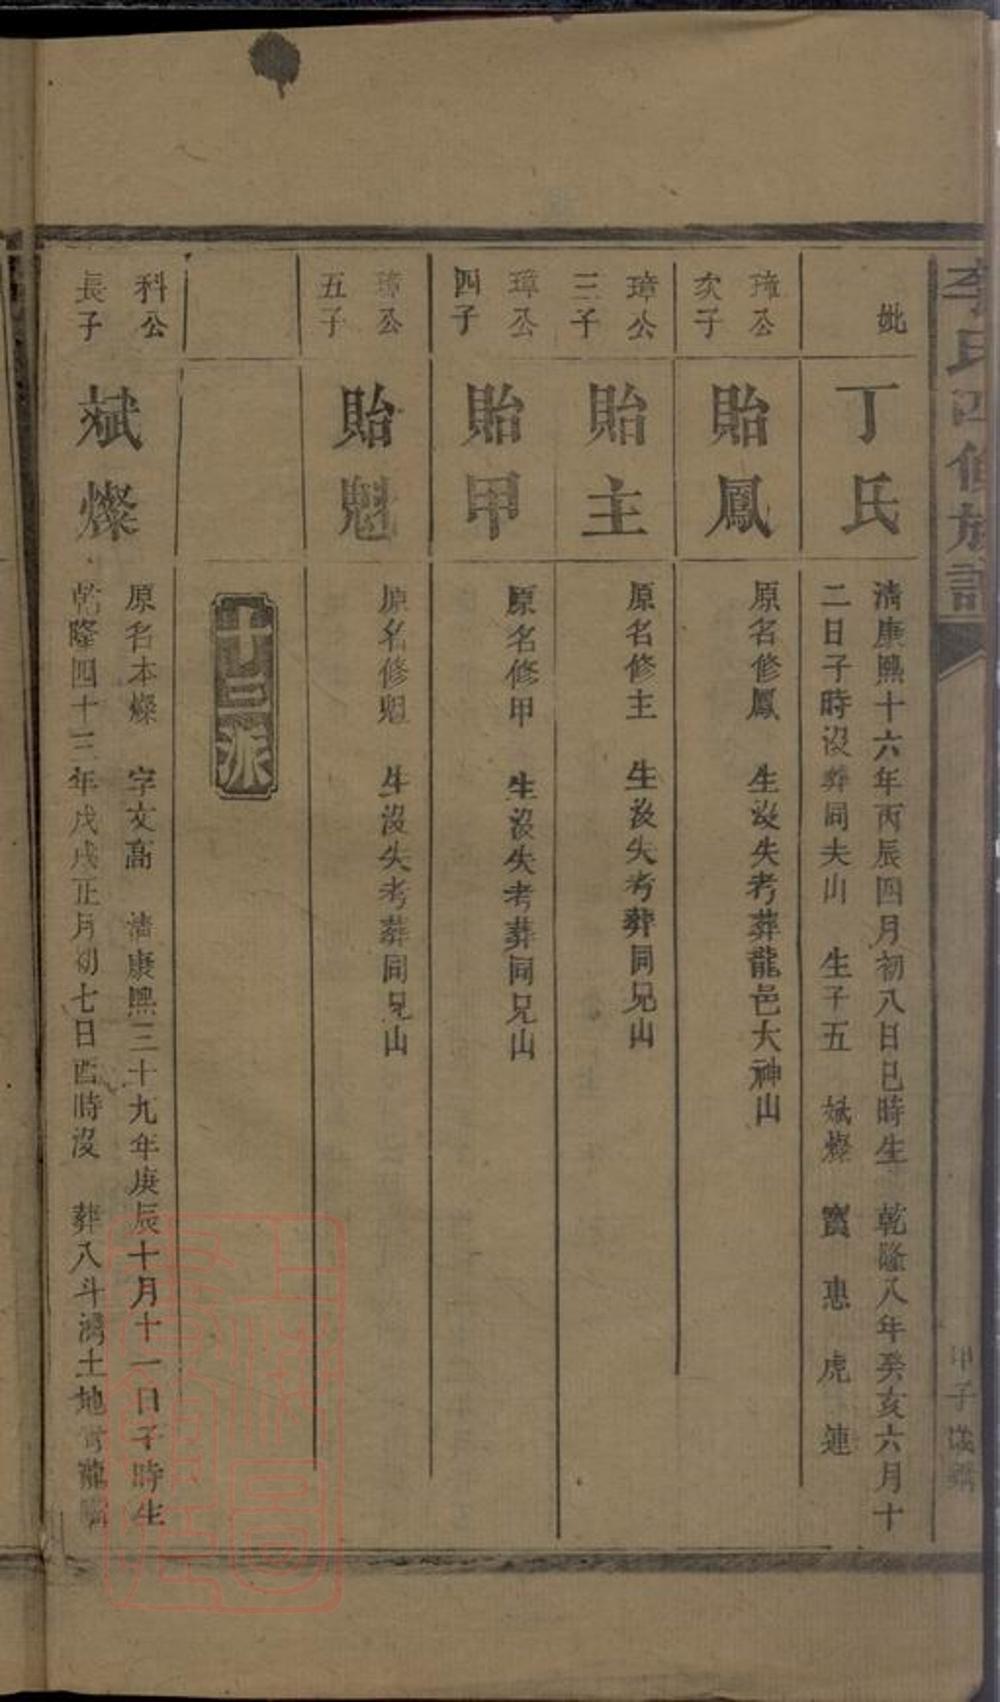 李氏四修族譜
甲子歲鐫
妣
丁氏
清康熙十六年丙辰四月初八日巳時生 乾隆八年癸亥六月十
二日子時沒葬同夫山 生子五 斌燦 寶 惠 虎 連
璋公
次子
貽鳳
原名修鳳 生沒失考葬龍邑大神山
璋公
三子
貽主
原名修主 生沒失考葬同兄山
璋公
四子
貽甲
原名修甲 生沒失考葬同兄山
璋公
五子
貽魁
原名修魁 生沒失考葬同兄山
十三派
科公
長子
斌燦
原名本燦 字文高 清康熙三十九年庚辰十月十一日子時生
乾隆四十三年戊戌正月初七日酉時沒 葬八斗灣土地